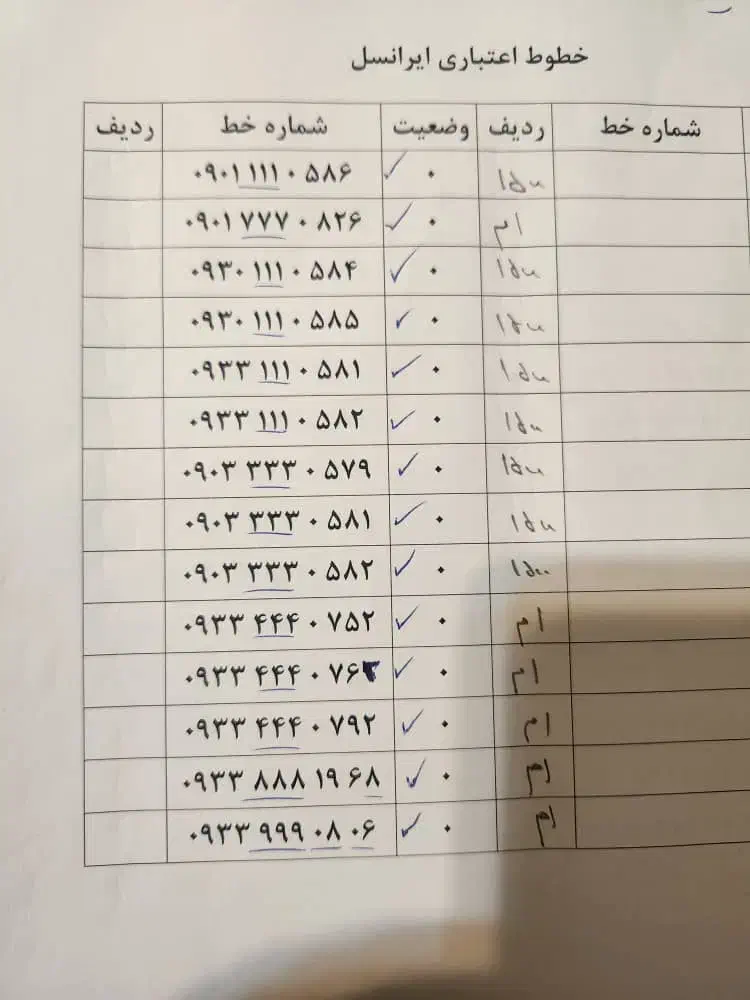 خطوط اعتباری ایرانسل
شماره خط ردیف وضعیت شماره خط ردیف
۰ ۰۹۰۱ ۱۱۱ ۰ ۵۸۶
ام ۰ ۰۹۰۱ ۷۷۷ ۰ ۸۲۶
۰ ۰۹۳۰ ۱۱۱ ۰ ۵۸۴
۰ ۰۹۳۰ ۱۱۱ ۰ ۵۸۵
۰ ۰۹۳۳ ۱۱۱ ۰ ۵۸۱
۰ ۰۹۳۳ ۱۱۱ ۰ ۵۸۲
۰ ۰۹۰۳ ۳۳۳ ۰ ۵۷۹
۰ ۰۹۰۳ ۳۳۳ ۰ ۵۸۱
۰ ۰۹۰۳ ۳۳۳ ۰ ۵۸۲
ام ۰ ۰۹۳۳ ۴۴۴ ۰ ۷۵۲
ام ۰ ۰۹۳۳ ۴۴۴ ۰
ام ۰ ۰۹۳۳ ۴۴۴ ۰ ۷۹۲
ام ۰ ۰۹۳۳ ۸۸۸ ۱۹ ۶۸
ام ۰ ۰۹۳۳ ۹۹۹ ۰۸ ۰۶